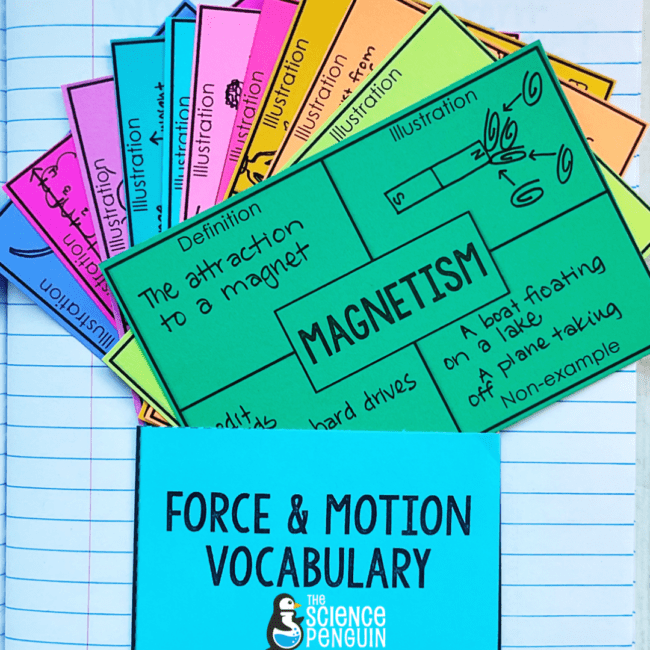 Illustration
Illustration
Illustration
Illustration
Illustration
Illustration
Illustration
Illustration
Illustration
from
Definition
Illustration
The attraction
to a magnet
S
N
MAGNETISM
hard drives
A boat floating
on a lake
A plane taking
off
Non-example
FORCE & MOTION
VOCABULARY
THE
SCIENCE
PENGUIN